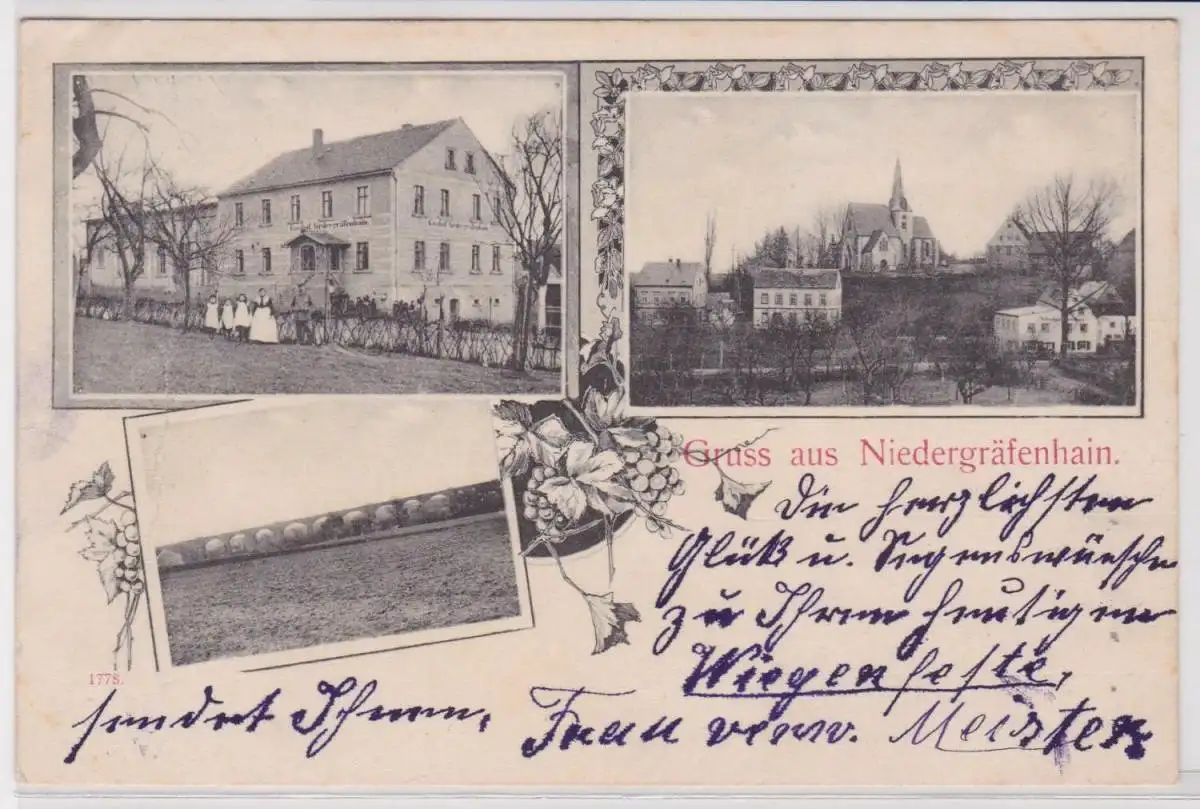 Gasthof Niedergräfenhain
Gasthof Niedergräfenhain
Gruss aus Niedergräfenhain.
Die herzlichsten
Glück u. Segenswünsche
zu Ihrem heutigen
Wiegenfeste,
sendet Ihnen,
Frau verw. Meister
1778.